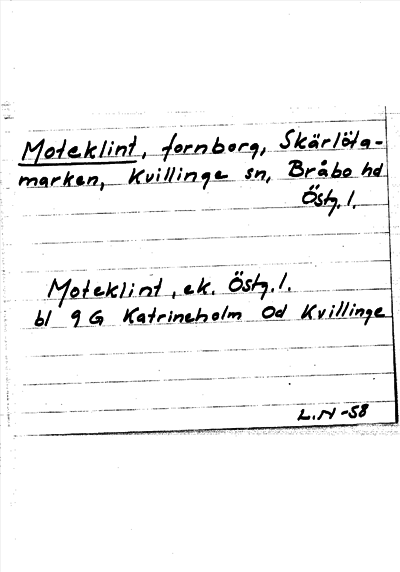 Moteklint, fornborg, Skärlöta-
marken, Kvillinge sn, Bråbo hd
Östg. l.
Moteklint, ek. Östg. l.
bl 9 G Katrineholm Od Kvillinge
L.N -58